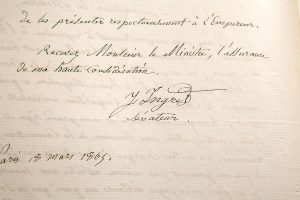 de les présenter respectueusement à l'Empereur.
Recevez Monsieur le Ministre, l'assurance
de ma haute considération.
J Ingres
Sénateur.
Paris 18 mars 1865.